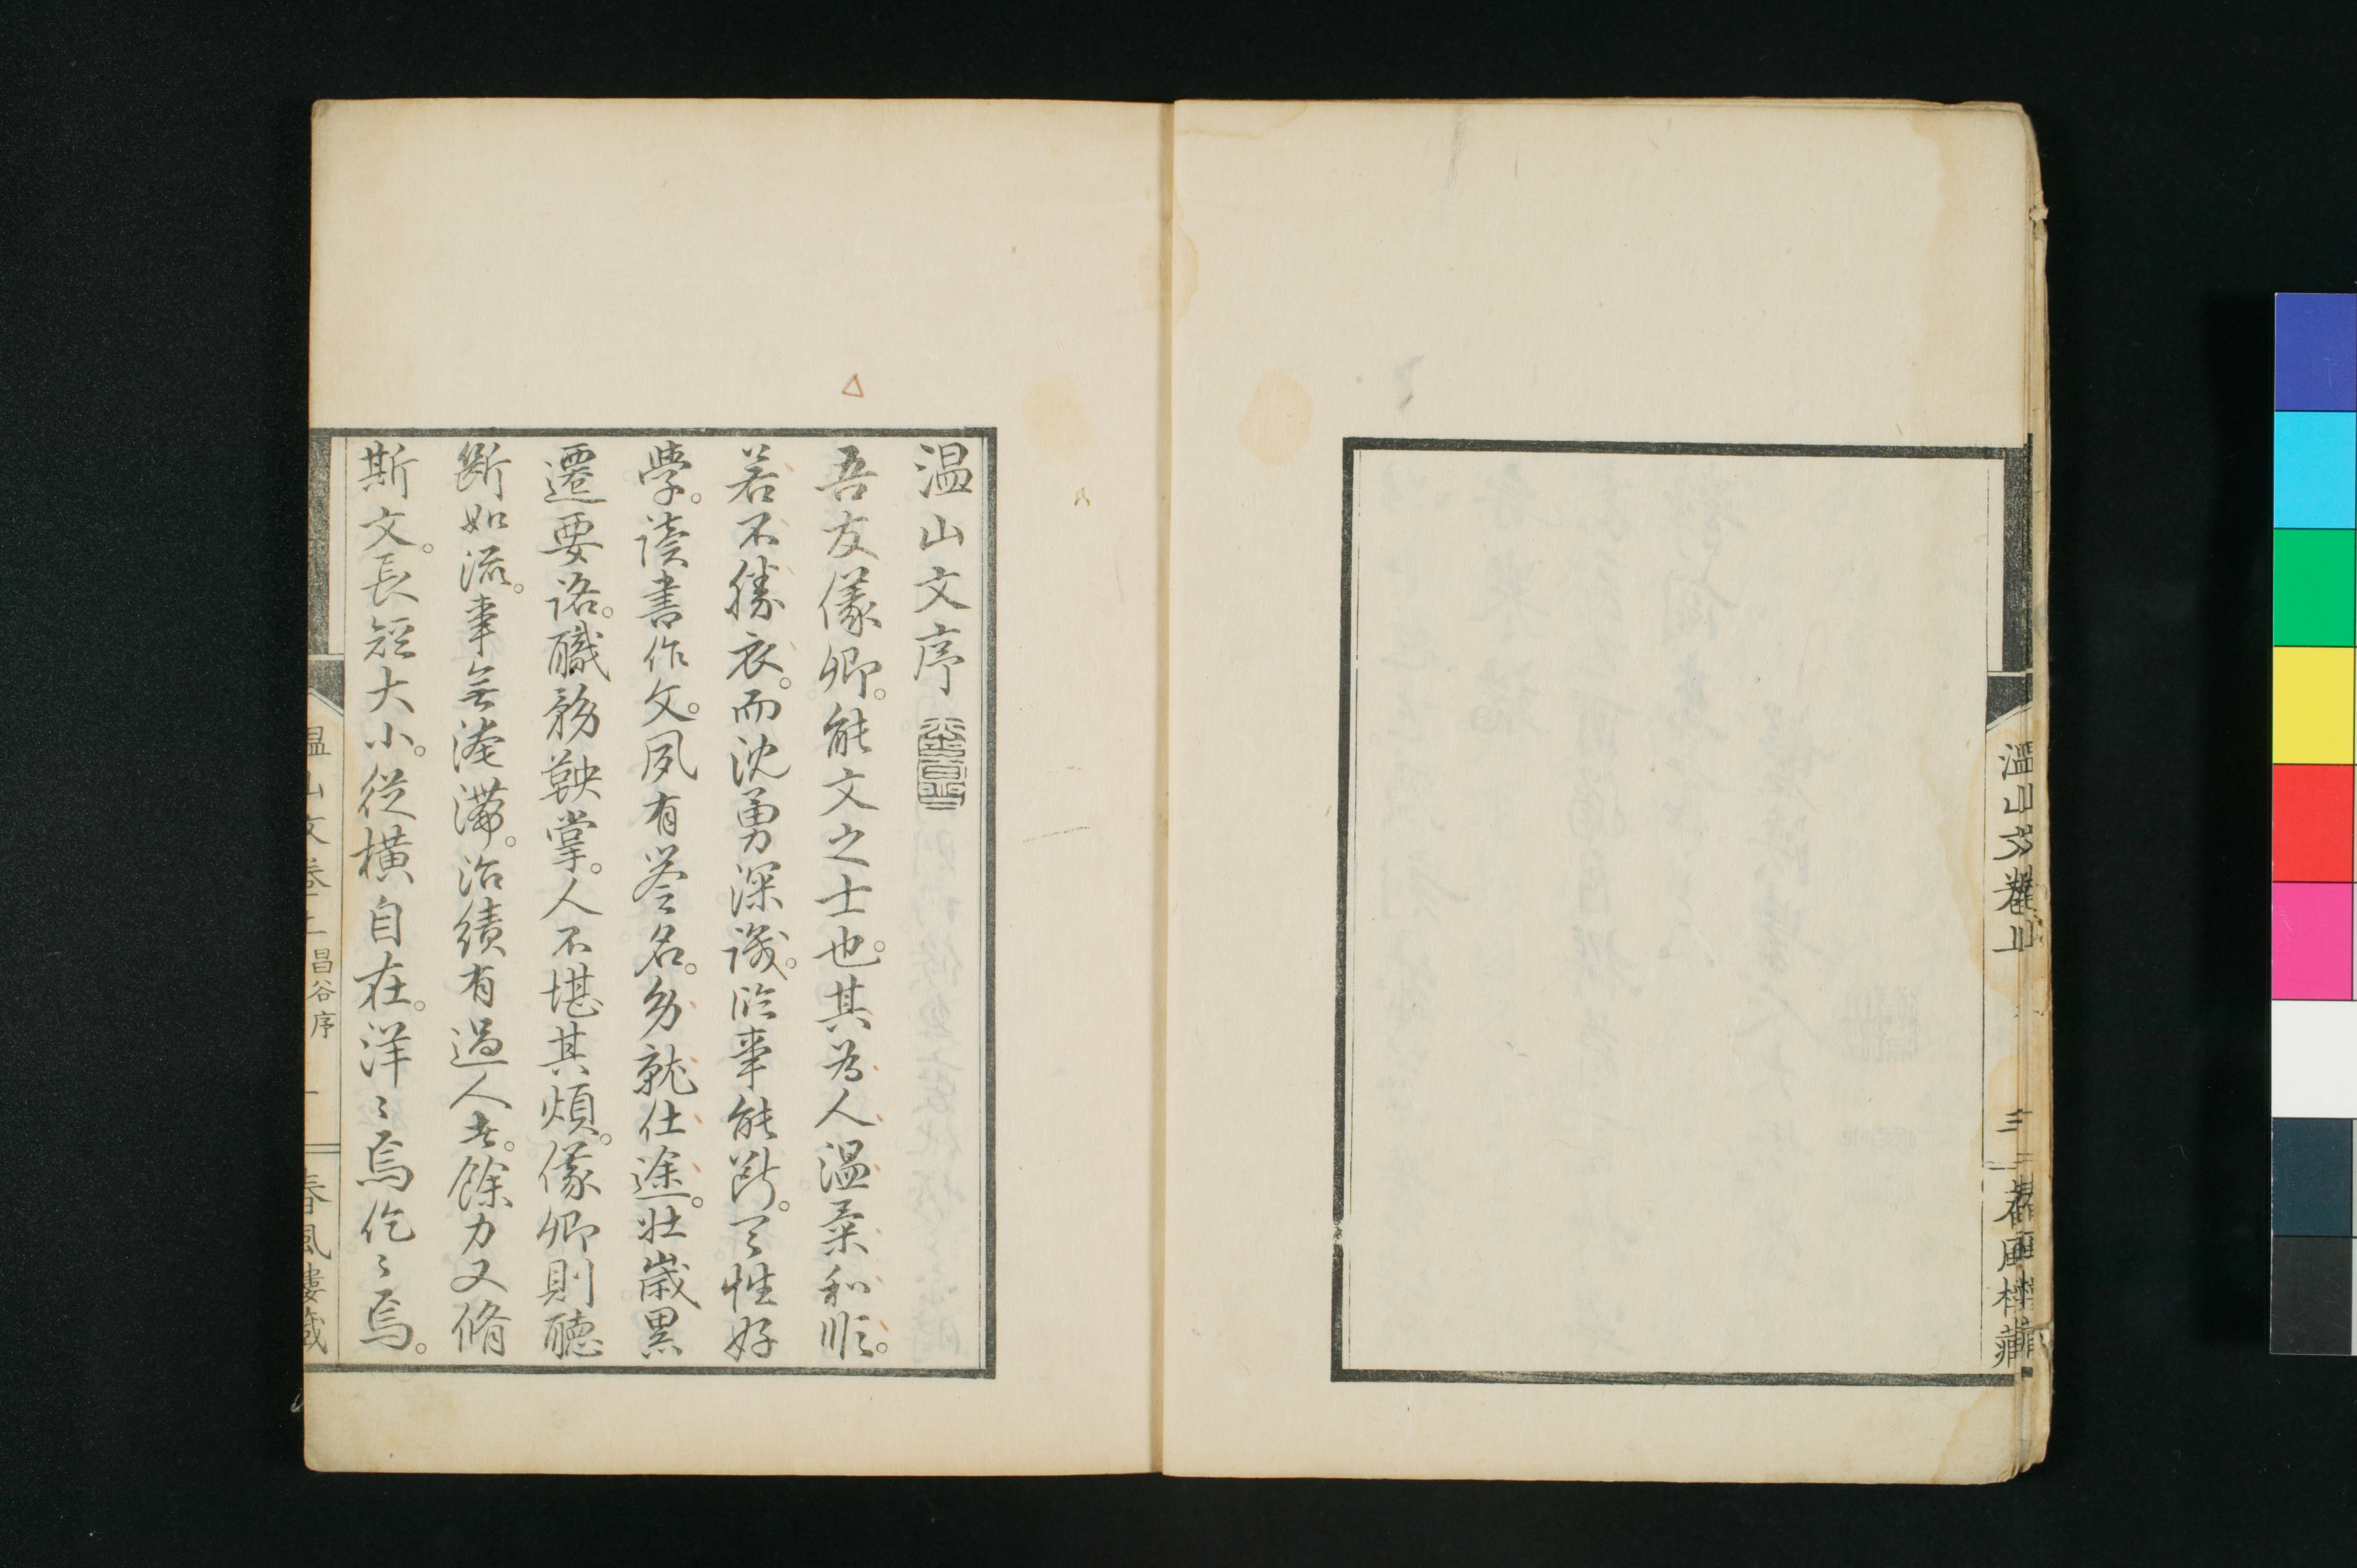 温山文卷上
三
春風樓藏
温山文序
吾友儀卿。能文之士也。其為人温柔和順。
若不勝衣。而沈勇深識。臨事能斷。天性好
學。讀書作文。夙有答名。多就仕途。壯歲累
遷要路。職務鞅掌。人不堪其煩。儀卿則聽
斷如流。事無淹滯。治績有過人者。餘力又脩
斯文。長短大小。從橫自在。洋〻焉佗〻焉。
温山文卷上
昌谷序
一
春風樓藏